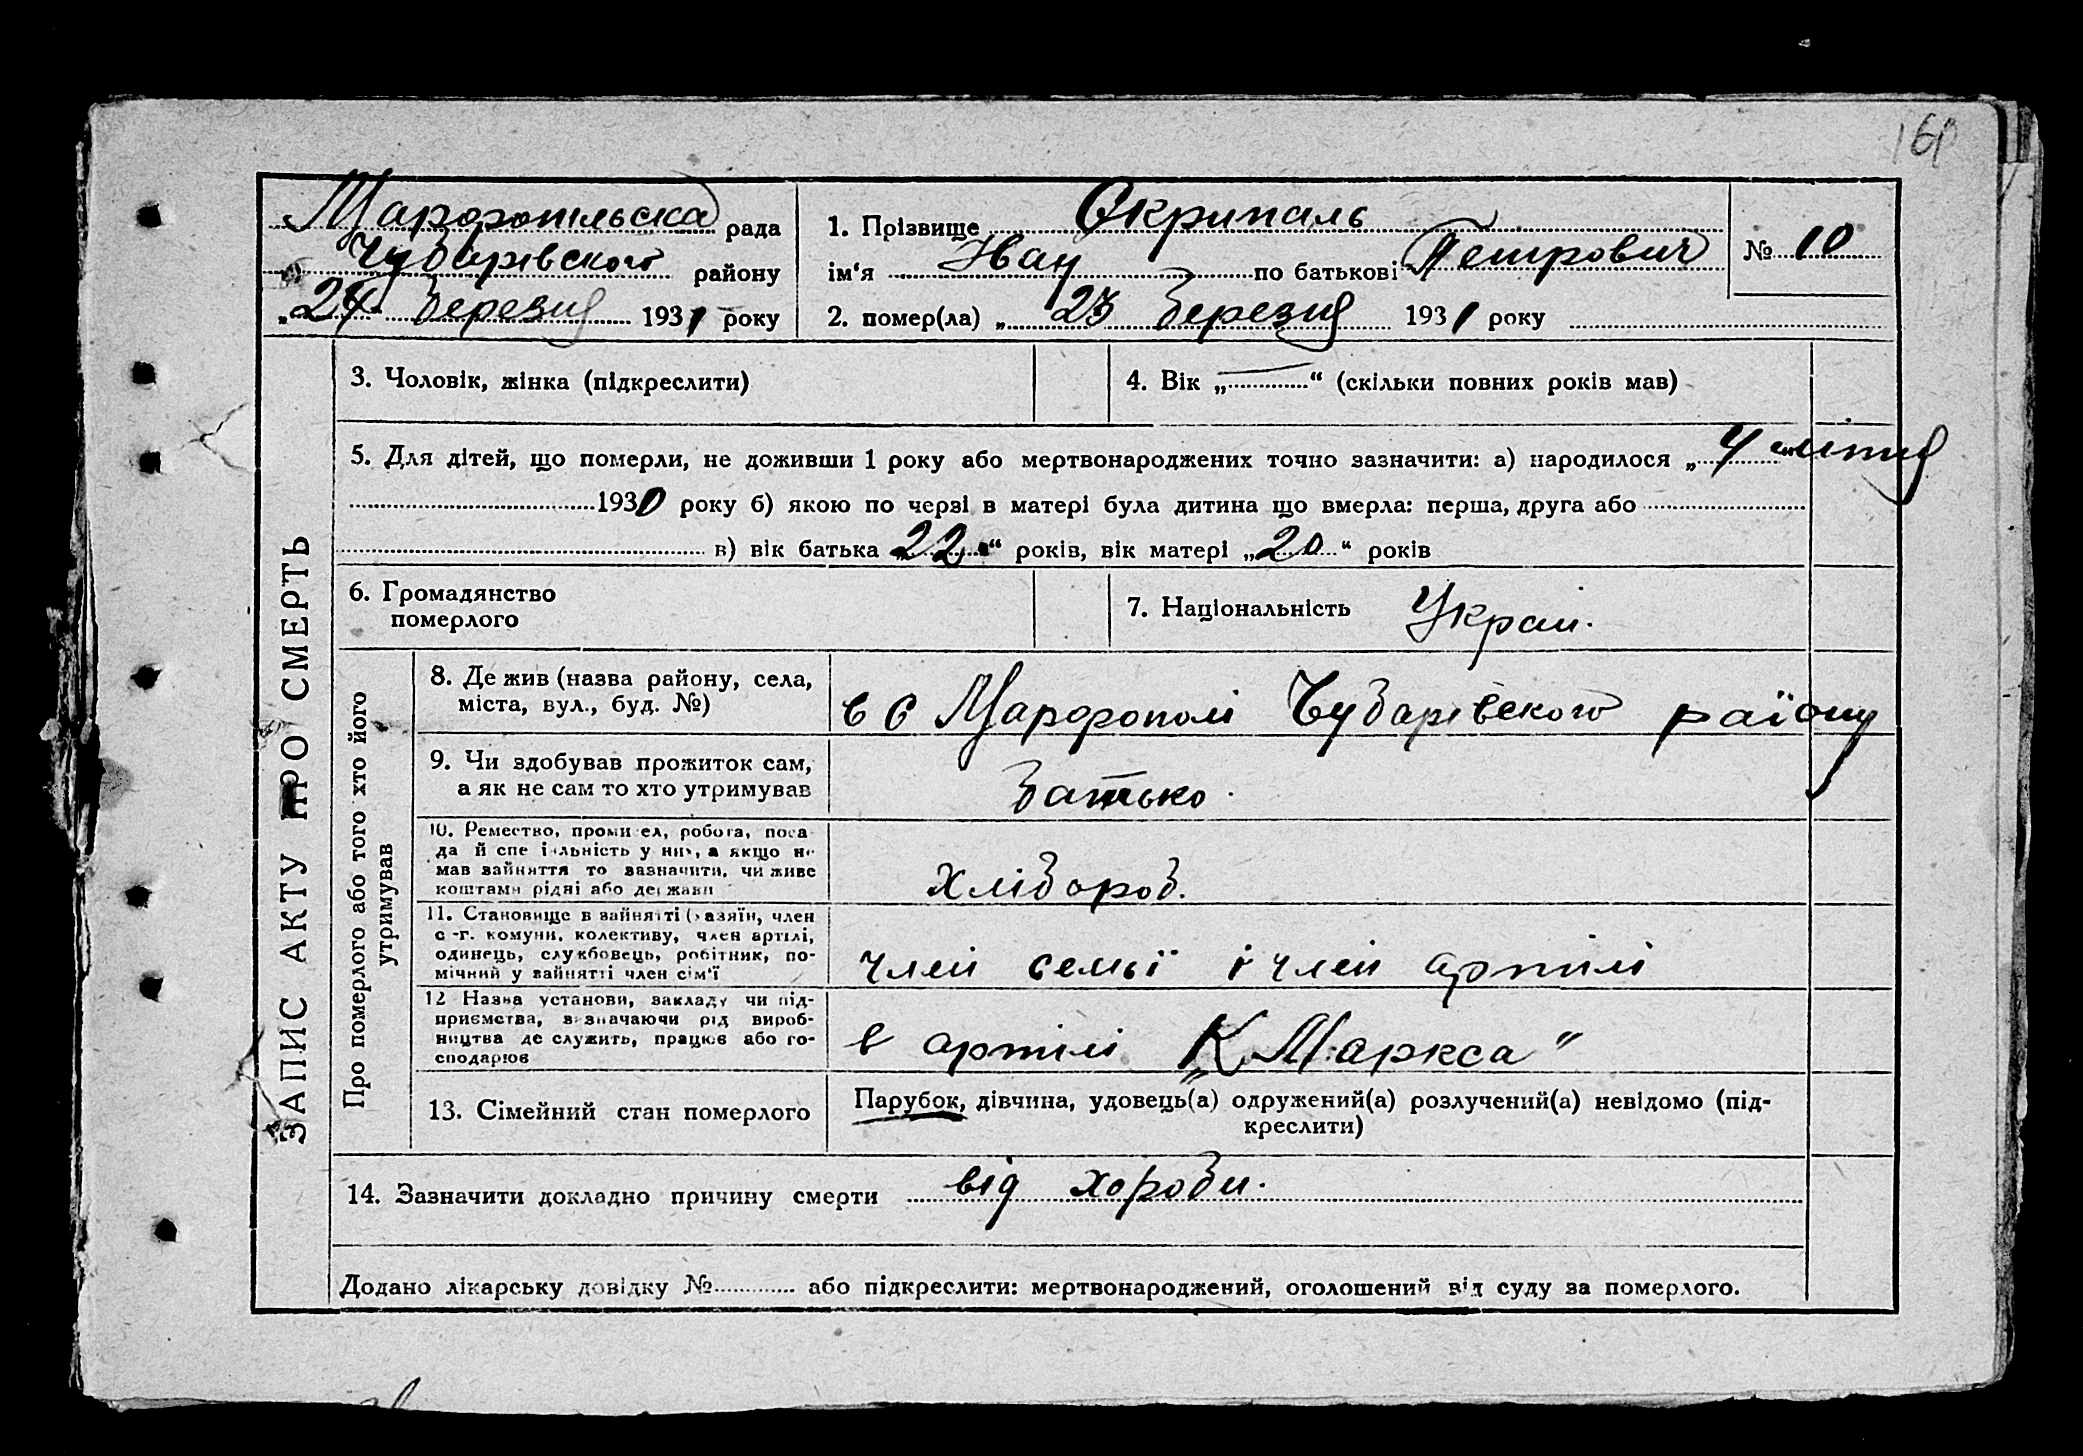 160
Марфопільська рада
Чубарівского району
„24" березня 1931 року
1. Прізвище Скрипаль
ім'я Іван по батькові Петрович
2. помер(ла) „ 23 березня 1931 року
№ 10
ЗАПИС АКТУ ПРО СМЕРТЬ
3. Чоловік, жінка (підкреслити)
4. Вік „ — " (скільки повних років мав)
5. Для дітей, що померли, не доживши 1 року або мертвонароджених точно зазначити: а) народилося „ 4 " літня
1930 року б) якою по черзі в матері була дитина що вмерла: перша, друга або
в) вік батька „22" років, вік матері „20" років
6. Громадянство
померлого
7. Національність Украй.
Про померлого або того хто його
утримував
8. Де жив (назва району, села,
міста, вул., буд. №)
в С Марфополі Чубарівского району
9. Чи здобував прожиток сам,
а як не сам то хто утримував
батько.
10. Ремество, промисел, робота, поса-
да й спеціяльність у них, а якщо не
мав зайняття то зазначити, чи живе
коштами рідні або держави
хлібороб.
11. Становище в зайнятті (хазяїн, член
с.-г. комуни, колективу, член артілі,
одинець, службовець, робітник, по-
мічний у зайнятті член сім'ї
член семьї і член артилі
12 Назва установи, закладу чи під-
приємства, визначаючи рід вироб-
ництва де служить, працює або го-
сподарює
в артилі „К Маркса"
13. Сімейний стан померлого
Парубок, дівчина, удовець(а) одружений(а) розлучений(а) невідомо (під-
креслити)
14. Зазначити докладно причину смерти від хороби.
Додано лікарську довідку № або підкреслити: мертвонароджений, оголошений від суду за померлого.